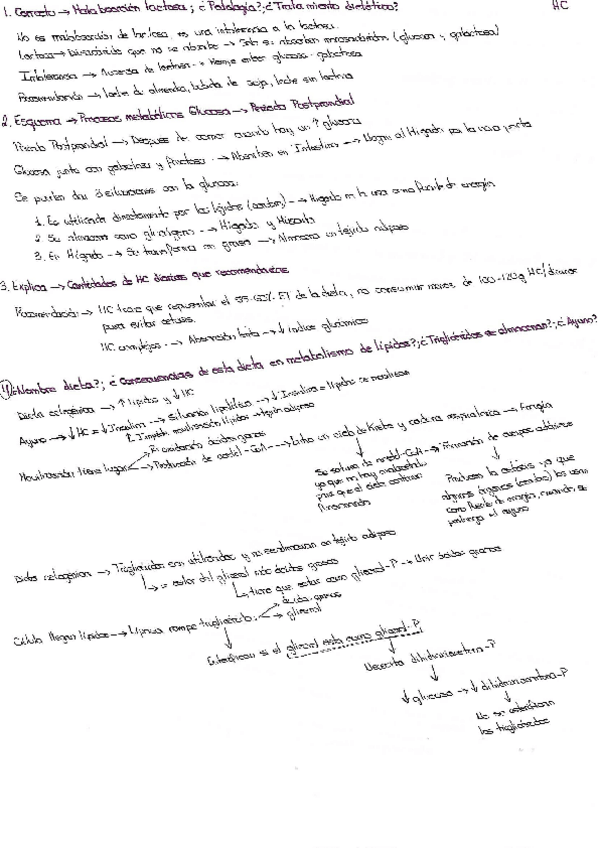 1. Correcto → Malabsorción lactosa; ¿Patología?; ¿Tratamiento dietético? HC
No es malabsorción de lactosa, es una intolerancia a la lactosa.
Lactosa → Disacárido que no se absorbe → Solo se absorben monosacáridos (glucosa y galactosa)
Intolerancia → Ausencia de lactasa → Rompe enlace glucosa-galactosa
Recomendación → leche de almendra, bebida de soja, leche sin lactosa
2. Esquema → Procesos metabólicos Glucosa → Período Postprandial
Periodo Postprandial → Después de comer cuando hay un ↑ glucosa
Glucosa junto con galactosa y fructosa → Absorben en Intestino → Llegan al Hígado por la vena porta
Se pueden dar 3 situaciones con la glucosa:
1. Es utilizada directamente por los tejidos (cerebro) → Hígado no la usa como fuente de energía
2. Se almacena como glucógeno → Hígado y Músculo
3. En Hígado → Se transforma en grasa → Almacena en tejido adiposo
3. Explica → Cantidades de HC diarias que recomendarías
Recomendación → HC tiene que representar el 55-60% ET de la dieta, no consumir menos de 100-120g HC/
para evitar cetosis.
HC complejos → Absorción lenta → ↓ índice glucémico
4. ¿Nombre dieta?; ¿Consecuencias de esta dieta en metabolismo de lípidos?; ¿Triglicéridos se almacenan?; ¿Ayuno?
Dieta cetogénica → ↑ lípidos y ↓ HC
Ayuno → ↓ HC = ↓ Insulina → Situación lipolítica → ↓ Insulina = lípidos se movilizan
movilización lípidos → tejido adiposo
Movilización tiene lugar → oxidación ácidos grasos
→ Producción de acetil-CoA → Entra en ciclo de Krebs y cadena respiratoria → Energía
Se satura de acetil-CoA → Formación de cuerpos cetónicos
ya que no hay oxalacetato
para que el ciclo continúe
funcionando
Producen la cetosis ya que
algunos órganos (cerebro) los usan
como fuente de energía, cuando se
prolonga el ayuno
Dieta cetogénica → Triglicéridos son utilizados y no se almacenan en tejido adiposo
→ = ester del glicerol más ácidos grasos
→ tiene que estar como glicerol-P → Unir ácidos grasos
Célula llegan lípidos → Lipasa rompe triglicérido: ácidos grasos
glicerol
Esterifican si el glicerol está como glicerol-P
Necesita dihidroxiacetona-P
↓ glucosa → ↓ dihidroxiacetona-P
No se esterifican
los triglicéridos